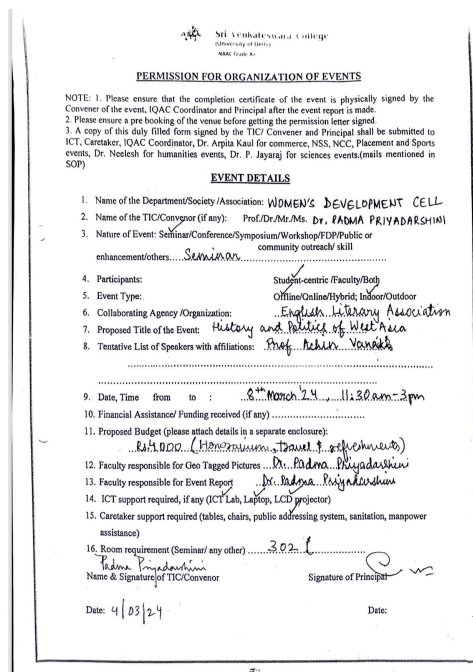 Sri Venkateswara College
(University of Delhi)
NAAC Grade A+
PERMISSION FOR ORGANIZATION OF EVENTS
NOTE: 1. Please ensure that the completion certificate of the event is physically signed by the
Convener of the event, IQAC Coordinator and Principal after the event report is made.
2. Please ensure a pre booking of the venue before getting the permission letter signed.
3. A copy of this duly filled form signed by the TIC/ Convener and Principal shall be submitted to
ICT, Caretaker, IQAC Coordinator, Dr. Arpita Kaul for commerce, NSS, NCC, Placement and Sports
events, Dr. Neelesh for humanities events, Dr. P. Jayaraj for sciences events.(mails mentioned in
SOP)
EVENT DETAILS
1. Name of the Department/Society /Association: WOMEN'S DEVELOPMENT CELL
2. Name of the TIC/Convenor (if any): Prof/Dr/Mr./Ms. Dr. PADMA PRIYADARSHINI
3. Nature of Event: Seminar/Conference/Symposium/Workshop/FDP/Public or
community outreach/ skill
enhancement/others.....Seminar
4. Participants: Student-centric /Faculty/Both
5. Event Type: Offline/Online/Hybrid; Indoor/Outdoor
6. Collaborating Agency /Organization: English Literary Association
7. Proposed Title of the Event: History and Politics of West Asia
8. Tentative List of Speakers with affiliations: Prof Achin Vanaik
9. Date, Time from to : 8th March '24, 11:30 am - 3pm
10. Financial Assistance/ Funding received (if any)
11. Proposed Budget (please attach details in a separate enclosure):
Rs.4000 (Honorarium, travel & refreshments)
12. Faculty responsible for Geo Tagged Pictures Dr. Padma Priyadarshini
13. Faculty responsible for Event Report Dr. Padma Priyadarshini
14. ICT support required, if any (ICT Lab, Laptop, LCD projector)
15. Caretaker support required (tables, chairs, public addressing system, sanitation, manpower
assistance)
16. Room requirement (Seminar/ any other) 302
Padma Priyadarshini
Name & Signature of TIC/Convenor Signature of Principal
Date: 4/03/24 Date: